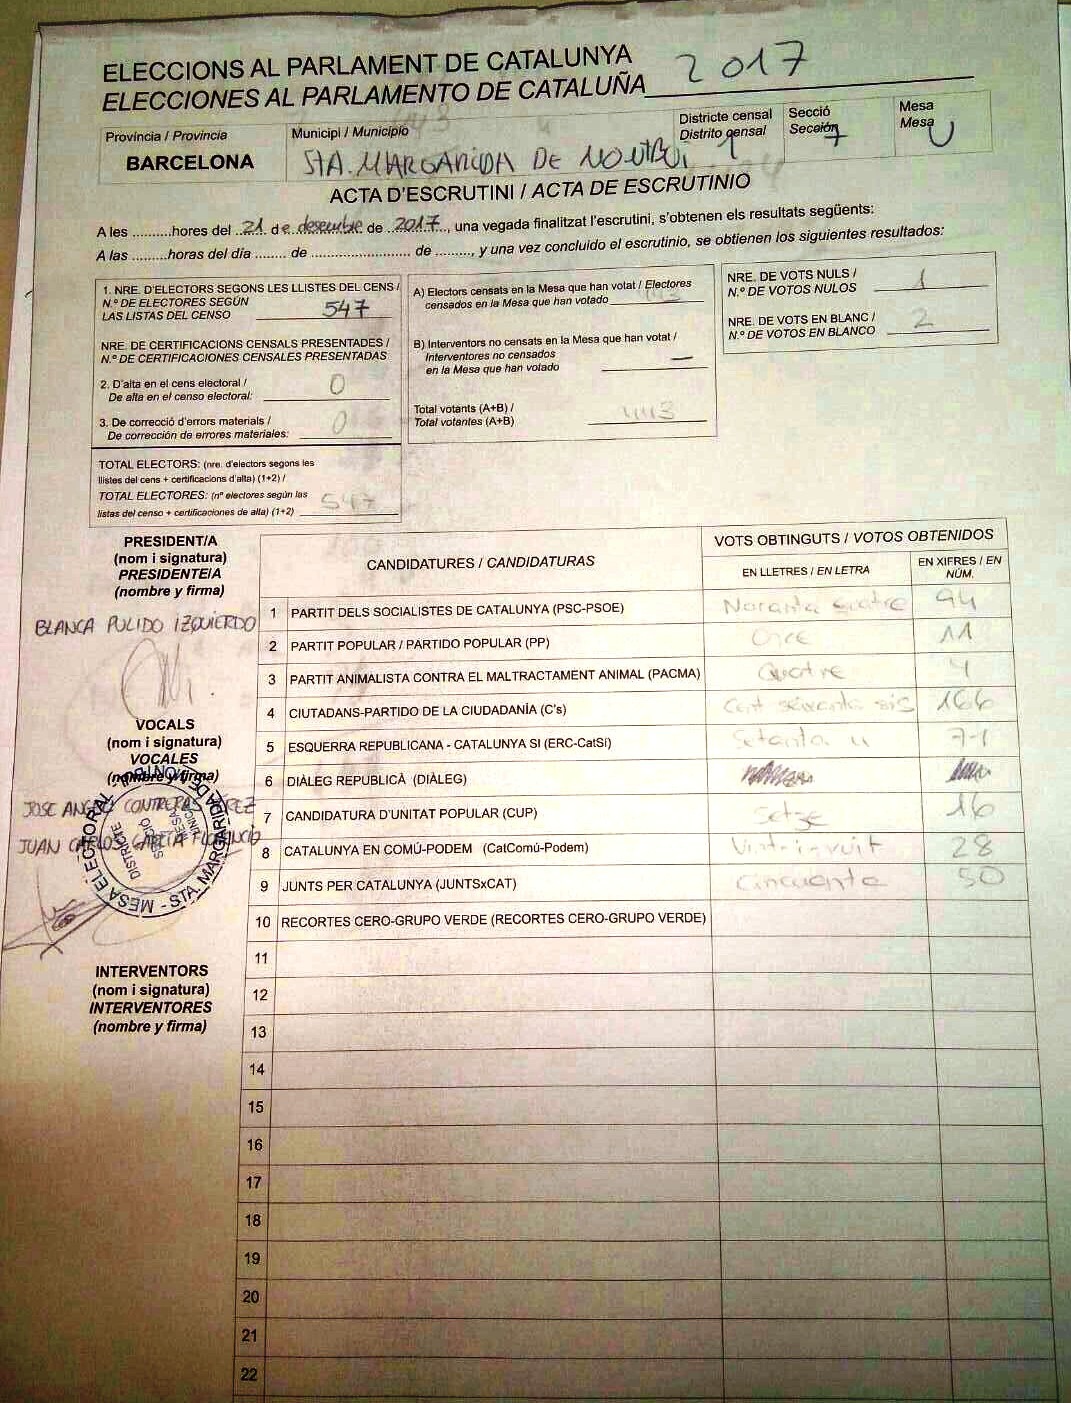 ELECCIONS AL PARLAMENT DE CATALUNYA 2017
ELECCIONES AL PARLAMENTO DE CATALUÑA
Província / Provincia
BARCELONA
Municipi / Municipio
STA. MARGARIDA DE MONTBUI
Districte censal
Distrito censal
1
Secció
Sección
7
Mesa
Mesa
U
ACTA D'ESCRUTINI / ACTA DE ESCRUTINIO
A les .........hores del 21 de desembre de 2017, una vegada finalitzat l'escrutini, s'obtenen els resultats següents:
A las .........horas del día ........ de ........................ de ........., y una vez concluido el escrutinio, se obtienen los siguientes resultados:
1. NRE. D'ELECTORS SEGONS LES LLISTES DEL CENS /
N.º DE ELECTORES SEGÚN
LAS LISTAS DEL CENSO 547
NRE. DE CERTIFICACIONS CENSALS PRESENTADES /
N.º DE CERTIFICACIONES CENSALES PRESENTADAS
2. D'alta en el cens electoral /
De alta en el censo electoral: 0
3. De correcció d'errors materials /
De corrección de errores materiales: 0
TOTAL ELECTORS: (nre. d'electors segons les
llistes del cens + certificacions d'alta) (1+2) /
TOTAL ELECTORES: (nº electores según las
listas del censo + certificaciones de alta) (1+2) 547
A) Electors censats en la Mesa que han votat / Electores
censados en la Mesa que han votado 443
B) Interventors no censats en la Mesa que han votat /
Interventores no censados
en la Mesa que han votado —
Total votants (A+B) /
Total votantes (A+B) 443
NRE. DE VOTS NULS /
N.º DE VOTOS NULOS 1
NRE. DE VOTS EN BLANC /
N.º DE VOTOS EN BLANCO 2
PRESIDENT/A
(nom i signatura)
PRESIDENTE/A
(nombre y firma)
BLANCA PULIDO IZQUIERDO
VOCALS
(nom i signatura)
VOCALES
(nombre y firma)
JOSE ANGEL CONTRERAS PÉREZ
JUAN CARLOS GARCÍA FLORENCIO
MESA ELECTORAL - STA. MARGARIDA DE MONTBUI
DISTRICTE
SECCIÓ
MESA
ÚNICA
INTERVENTORS
(nom i signatura)
INTERVENTORES
(nombre y firma)
CANDIDATURES / CANDIDATURAS
VOTS OBTINGUTS / VOTOS OBTENIDOS
EN LLETRES / EN LETRA
EN XIFRES / EN
NÚM.
1 PARTIT DELS SOCIALISTES DE CATALUNYA (PSC-PSOE) Noranta quatre 94
2 PARTIT POPULAR / PARTIDO POPULAR (PP) Onze 11
3 PARTIT ANIMALISTA CONTRA EL MALTRACTAMENT ANIMAL (PACMA) Quatre 4
4 CIUTADANS-PARTIDO DE LA CIUDADANÍA (C's) Cent seixanta sis 166
5 ESQUERRA REPUBLICANA - CATALUNYA SI (ERC-CatSí) Setanta u 71
6 DIÀLEG REPUBLICÀ (DIÀLEG)
7 CANDIDATURA D'UNITAT POPULAR (CUP) Setze 16
8 CATALUNYA EN COMÚ-PODEM (CatComú-Podem) Vint-i-vuit 28
9 JUNTS PER CATALUNYA (JUNTSxCAT) Cincuanta 50
10 RECORTES CERO-GRUPO VERDE (RECORTES CERO-GRUPO VERDE)
11
12
13
14
15
16
17
18
19
20
21
22